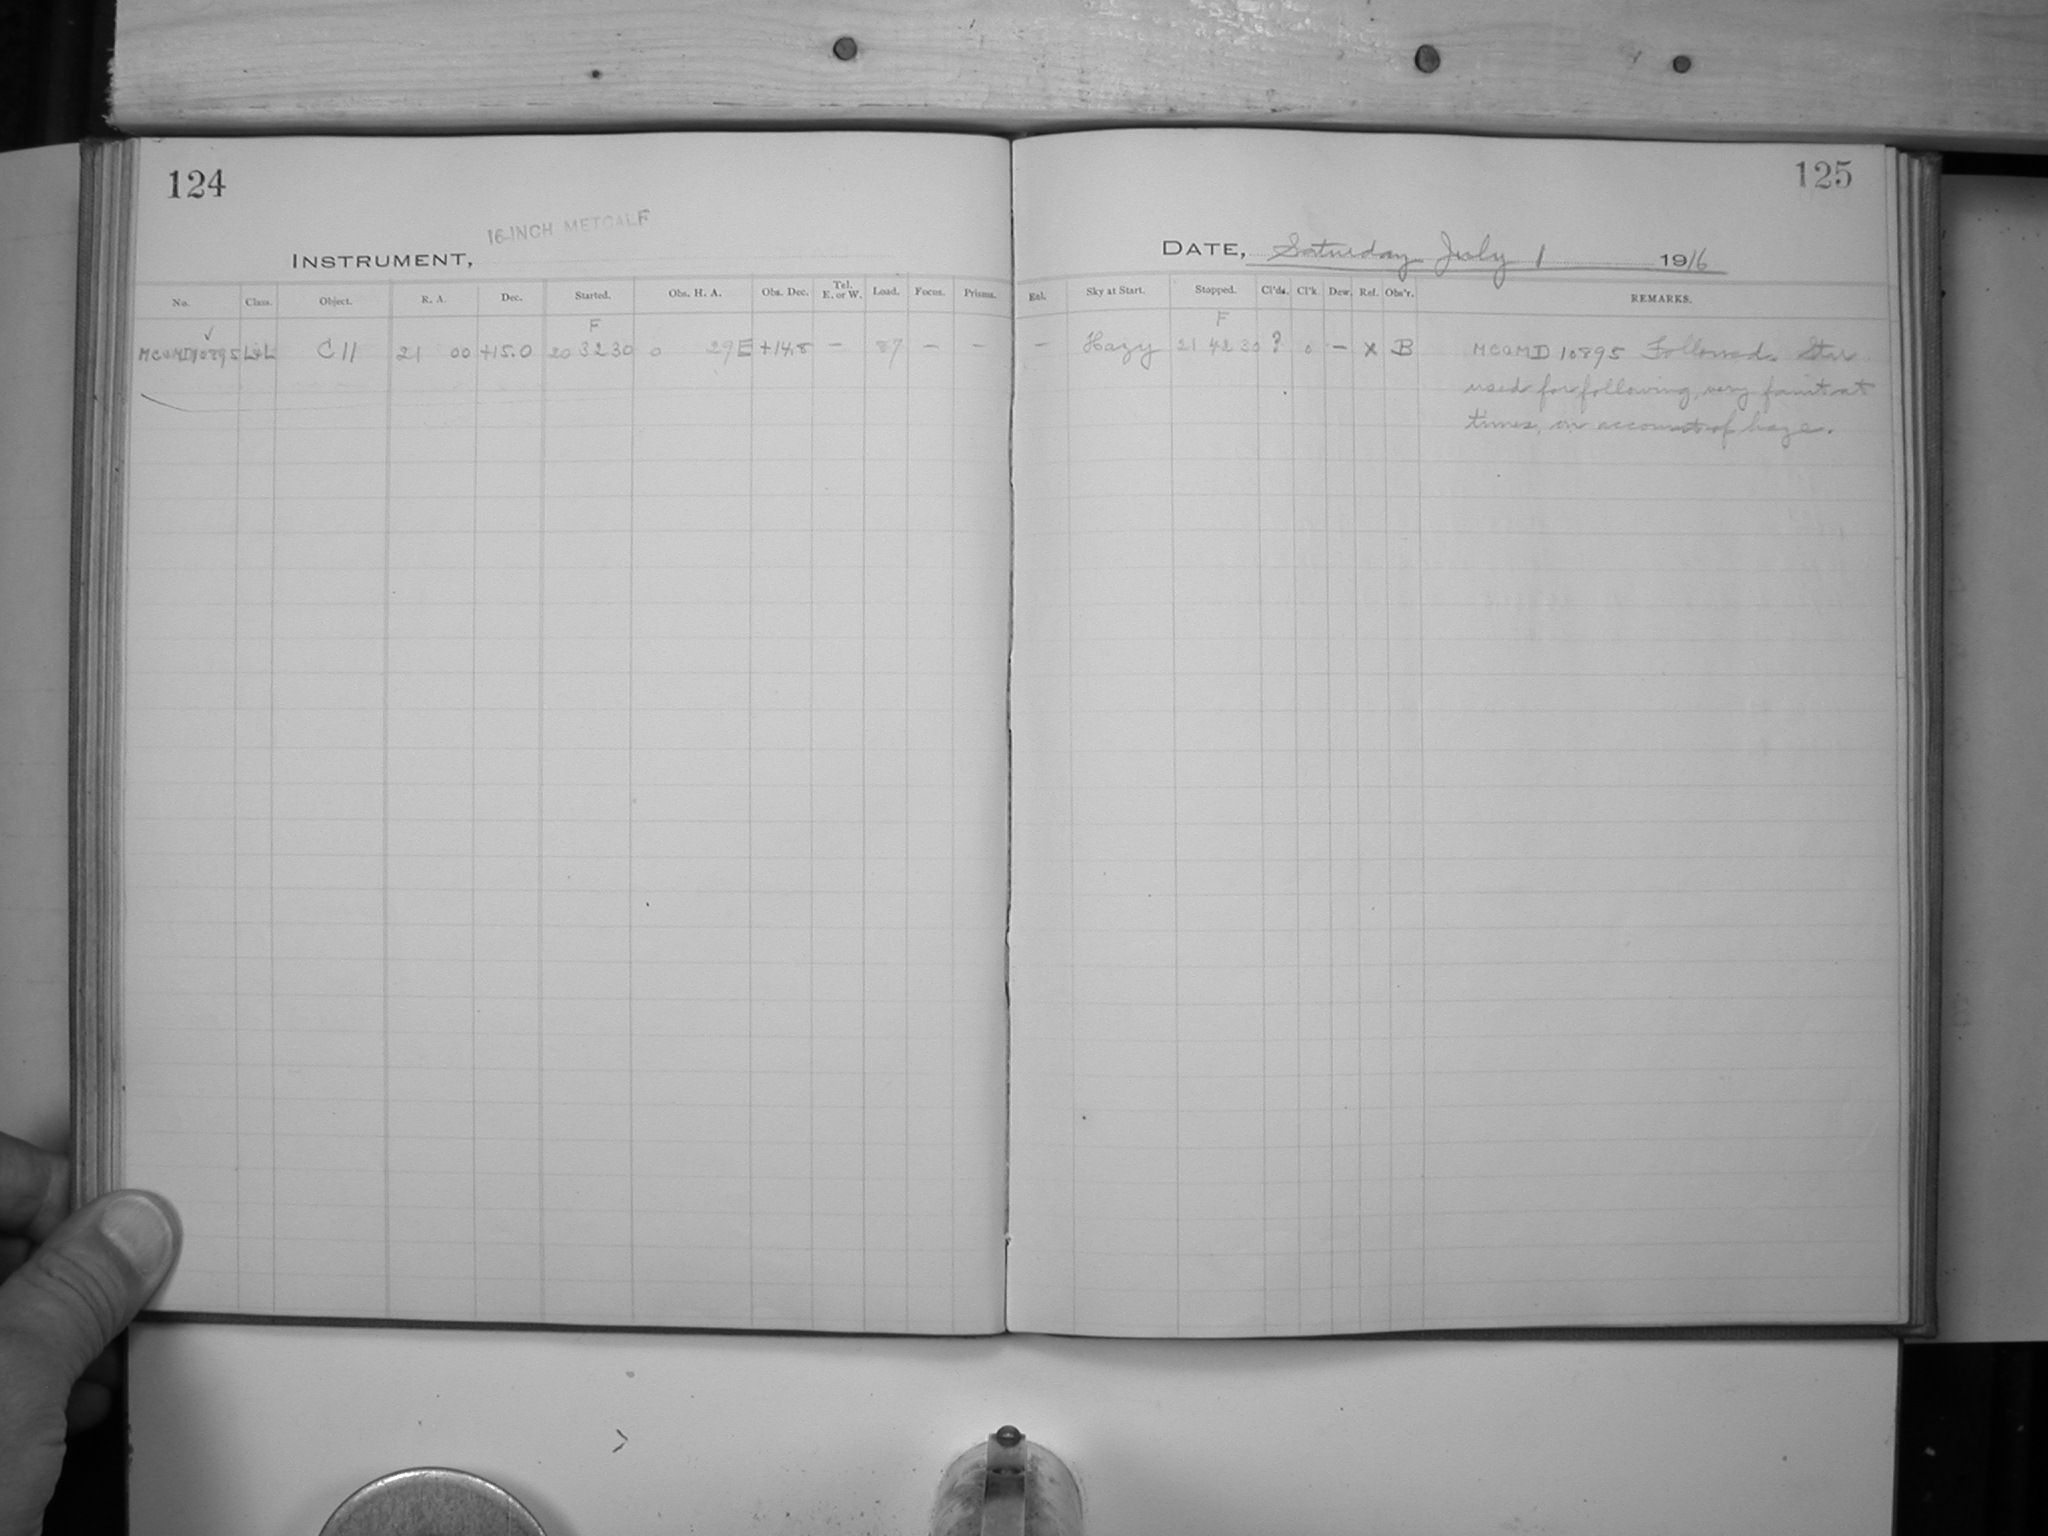 124
16-INCH METCALF
INSTRUMENT,
No. Class. Object. R. A. Dec. Started. Obs. H. A. Obs. Dec. Tel. E. or W. Load. Focus. Prisms.
F
10895 C 11 21 00 +15.0 20 32 30 0 29 E +14.8 – 87 – –
125
DATE, Saturday July 1 1916
Eal. Sky at Start. Stopped. Cl'ds. Cl'k. Dew. Ref. Obs'r. REMARKS.
F
– Hazy 21 42 30 ? 0 – x B 10895 Followed. Star
used for following, very faint at
times, on account of haze.